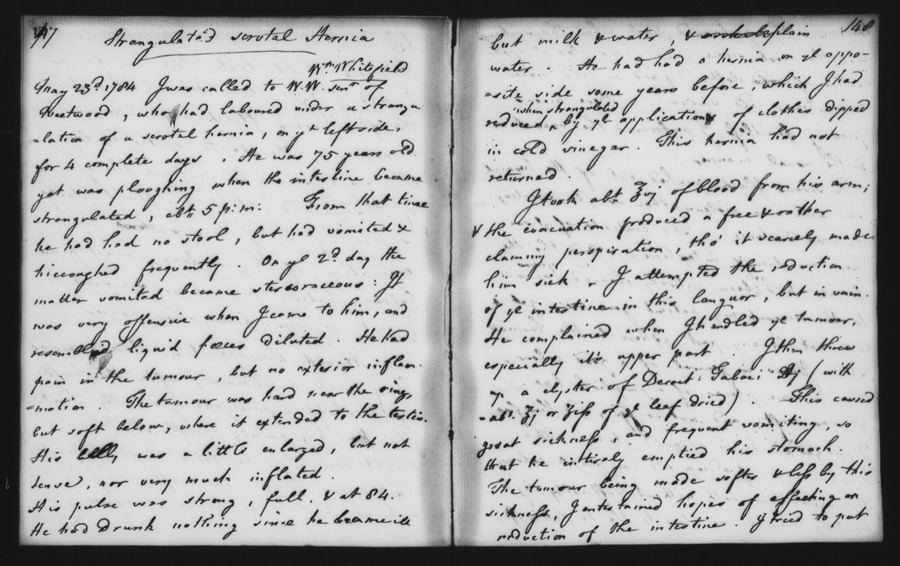 147
Strangulated scrotal Hernia
Wm. Whitefield
May 23d. 1784 I was called to W.W. senr. of
Fleetwood, who had laboured under a strangu-
=lation of a scrotal hernia, on ye left side,
for 4 complete days. He was 75 years old
yet was ploughing when the intestine became
strangulated, abt. 5 p: m: From that time
he had had no stool, but had vomited &
hiccoughed frequently. On ye 2d. day the
matter vomited became stercoraceous: It
was very offensive when I came to him, and
resembled liquid fæces diluted. He had
pain in the tumour, but no exterior inflam-
=mation. The tumour was hard near the ring,
but soft below, where it extended to the testis.
His belly was a little enlarged, but not
tense, nor very much inflated.
His pulse was strong, full, & at 84.
He had drunk nothing since he became ill
148
but milk & water, & plain
water. He had had a hernia on ye oppo-
=site side some years before, which I had
when strangulated
reduced, by ye application of clothes dipped
in cold vinegar. This hernia had not
returned.
I took abt. ℥vj of blood from his arm;
& the evacuation produced a free & rather
clammy perspiration, tho' it scarcely made
him sick. I attempted the reduction
of ye intestine in this languor, but in vain.
He complained when I handled ye tumour,
especially its upper part. I then threw
up a clyster of Decoct: Tabaci ℔j (with
abt. ℥j or ℥iss of ye leaf dried). This caused
great sickness, and frequent vomiting, so
that he intirely emptied his stomach.
The tumour being made softer & less by this
sickness, I entertained hopes of effecting an
reduction of the intestine. I tried to put